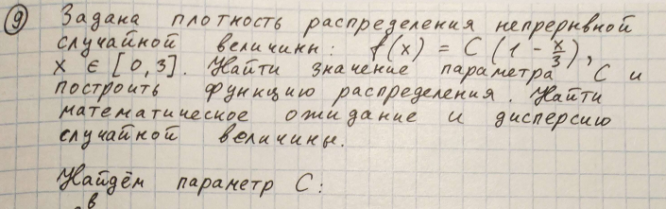 9 Задана плотность распределения непрерывной
случайной величины: f(x) = C (1 - x/3),
x ∈ [0,3]. Найти значение параметра C и
построить функцию распределения. Найти
математическое ожидание и дисперсию
случайной величины.
Найдём параметр C:
в